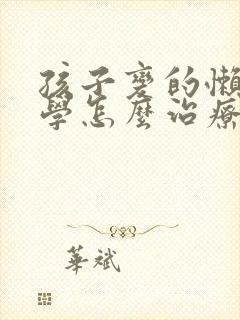 孩子變的懶
學怎麼治療
華斌